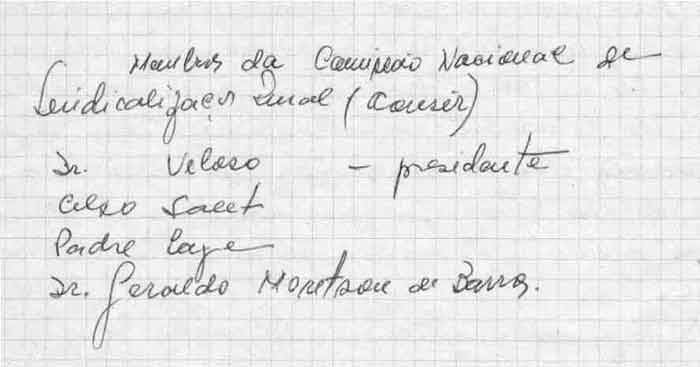 Membros da Comissão Nacional de
Sindicalização Rural (Consir)
Dr. Veloso - presidente
Celso
Padre Lage
Dr. Geraldo de Barros.